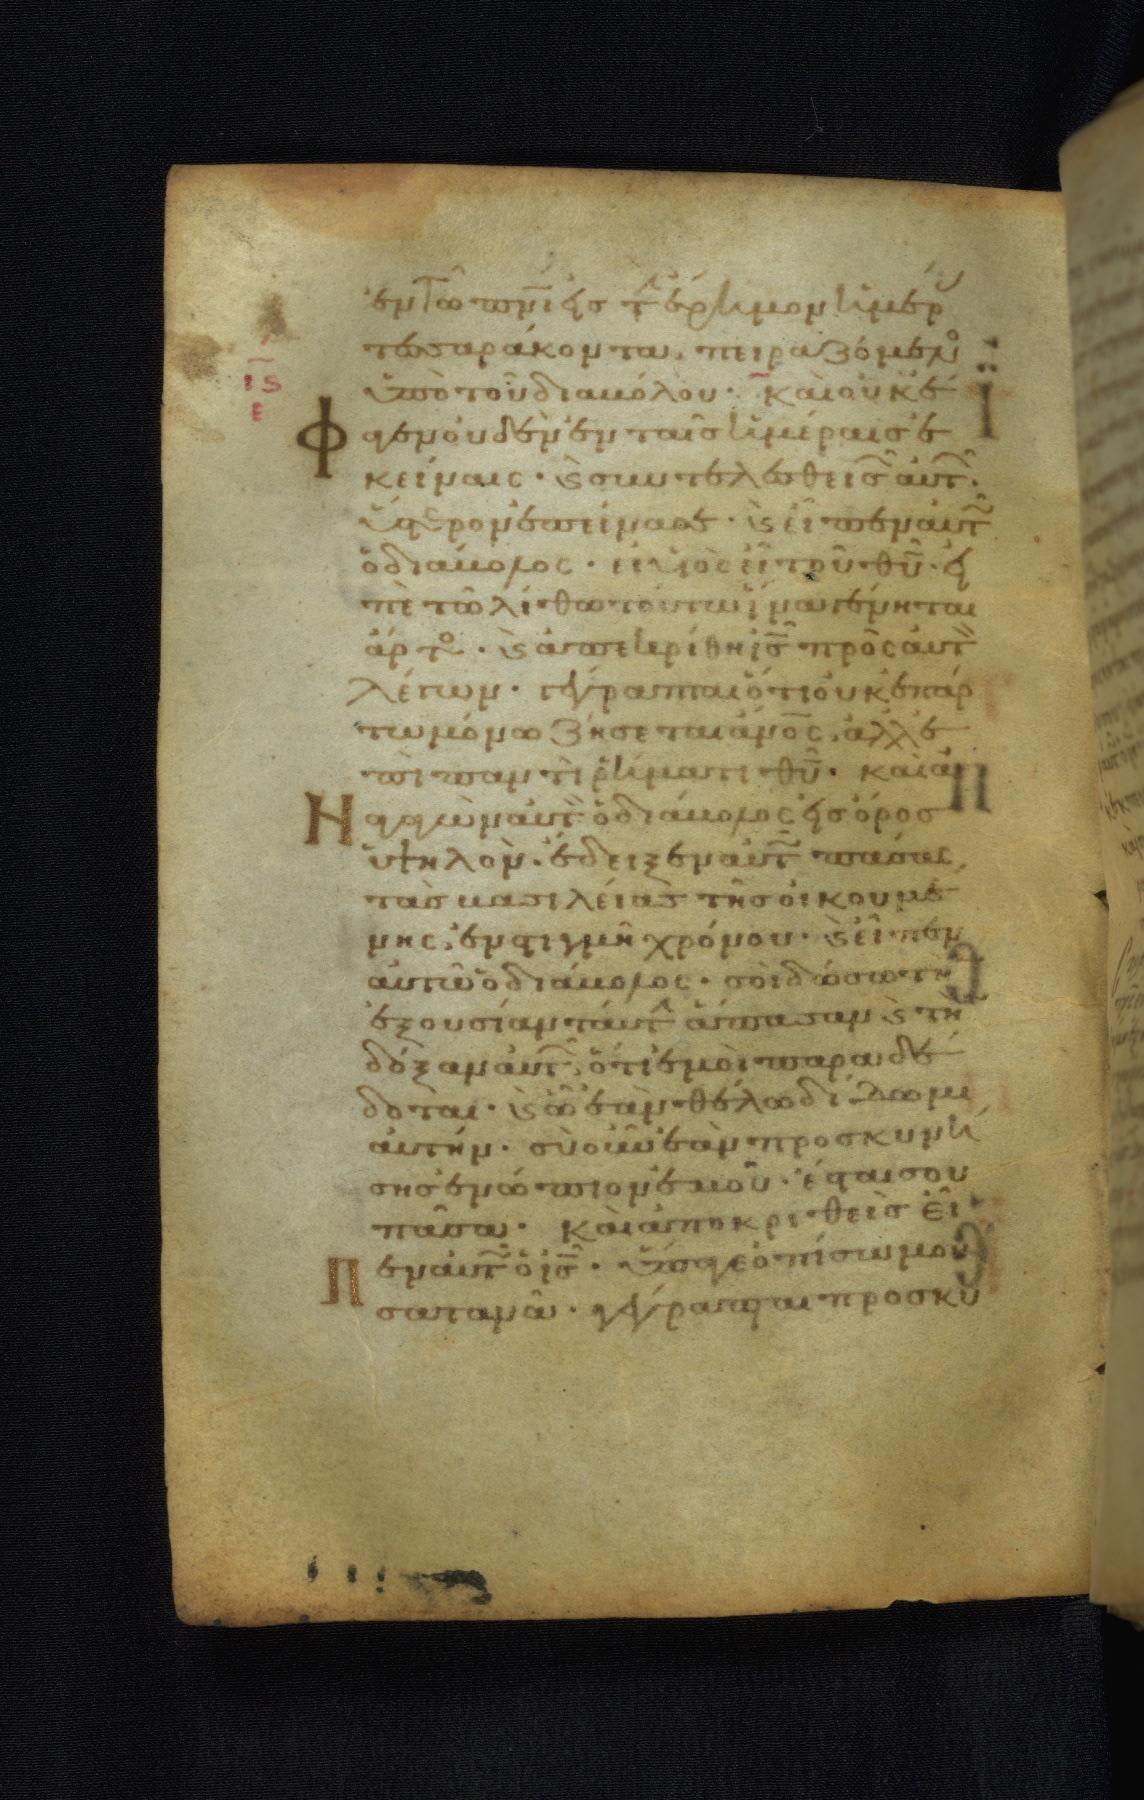 ἐν τῶ πνι εἰς τ ἔρημον ἡμέρ
τεσσαράκοντα πειραζόμενο
ὑπὸ τοῦ διαβόλου · καὶ οὐκ ἔ
ις
ε
φαγεν οὐδὲν ἐν ταῖς ἡμέραις ἐ
κείναις · ϗ συντελεσθεισ αὐτ ·
ὕστερον ἐπείνασε · ϗ εἶπεν αὐτ
ὁ διάβολος · εἰ υἱὸς εἶ τοῦ θυ · εἰ
πὲ τῶ λίθω τούτω ἵνα γένηται
ἄρτο · ϗ ἀπεκρίθη ις πρὸς αὐτ
λέγων · γέγραπται ὅτι οὐκ ἐπ ἄρ
τω μόνω ζήσεται ἄνος · ἀλλ ἐ
πὶ παντὶ ῥήματι θυ · καὶ ἀ
Π
νἀγαγὼν αὐτ ὁ διάβολος εἰς ὄρος
ὑψηλὸν · ἔδειξεν αὐτ πάσας
τὰς βασιλείας τῆς οἰκουμέ
νης ἐν στιγμῆ χρόνου · ϗ εἶπεν
αὐτῶ ὁ διάβολος · σοὶ δώσω τὴ
ἐξουσίαν ταύτ ἅπασαν ϗ τὴ
δόξαν αὐτ · ὅτι ἐμοὶ παραδέ
δοται · ϗ ὧ ἐὰν θέλω δίδωμι
αὐτήν · σὺ οὖν ἐὰν προσκυνή
σης ἐνώπιον ἐμοῦ · ἔσται σου
πᾶσα · καὶ ἀποκριθεὶς εἶ
Π
εν αὐτ ὁ ις · ὕπαγε ὀπίσω μου
σατανᾶ · γέγραπται προσκυ